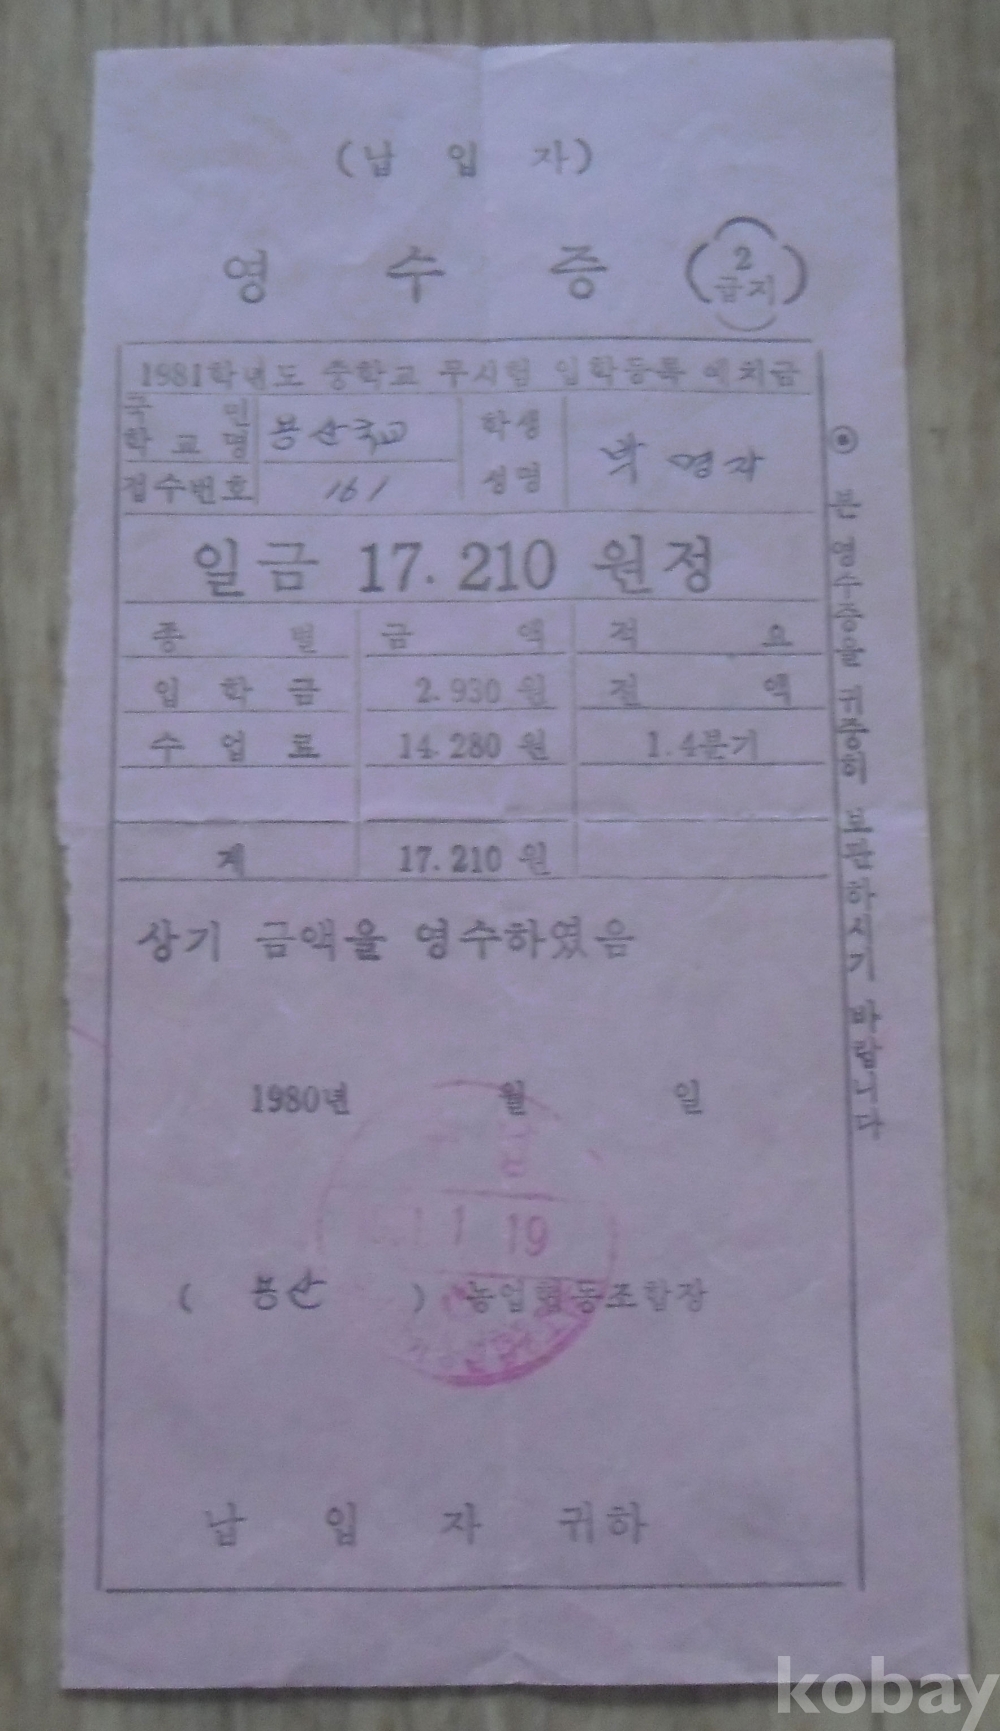 (납 입 자)
영 수 증
2
급지
1981학년도 중학교 무시험 입학등록 예치금
국 민
학 교 명
용산국교
학생
성명
박 명자
접수번호
161
일금 17.210 원정
종 별 금 액 적 요
입 학 금 2.930 원 전 액
수 업 료 14.280 원 1.4분기
계 17.210 원
상기 금액을 영수하였음
1980년 월 일
1 19
( 용산 ) 농업협동조합장
납 입 자 귀하
본 영수증을 귀중히 보관하시기 바랍니다
kobay